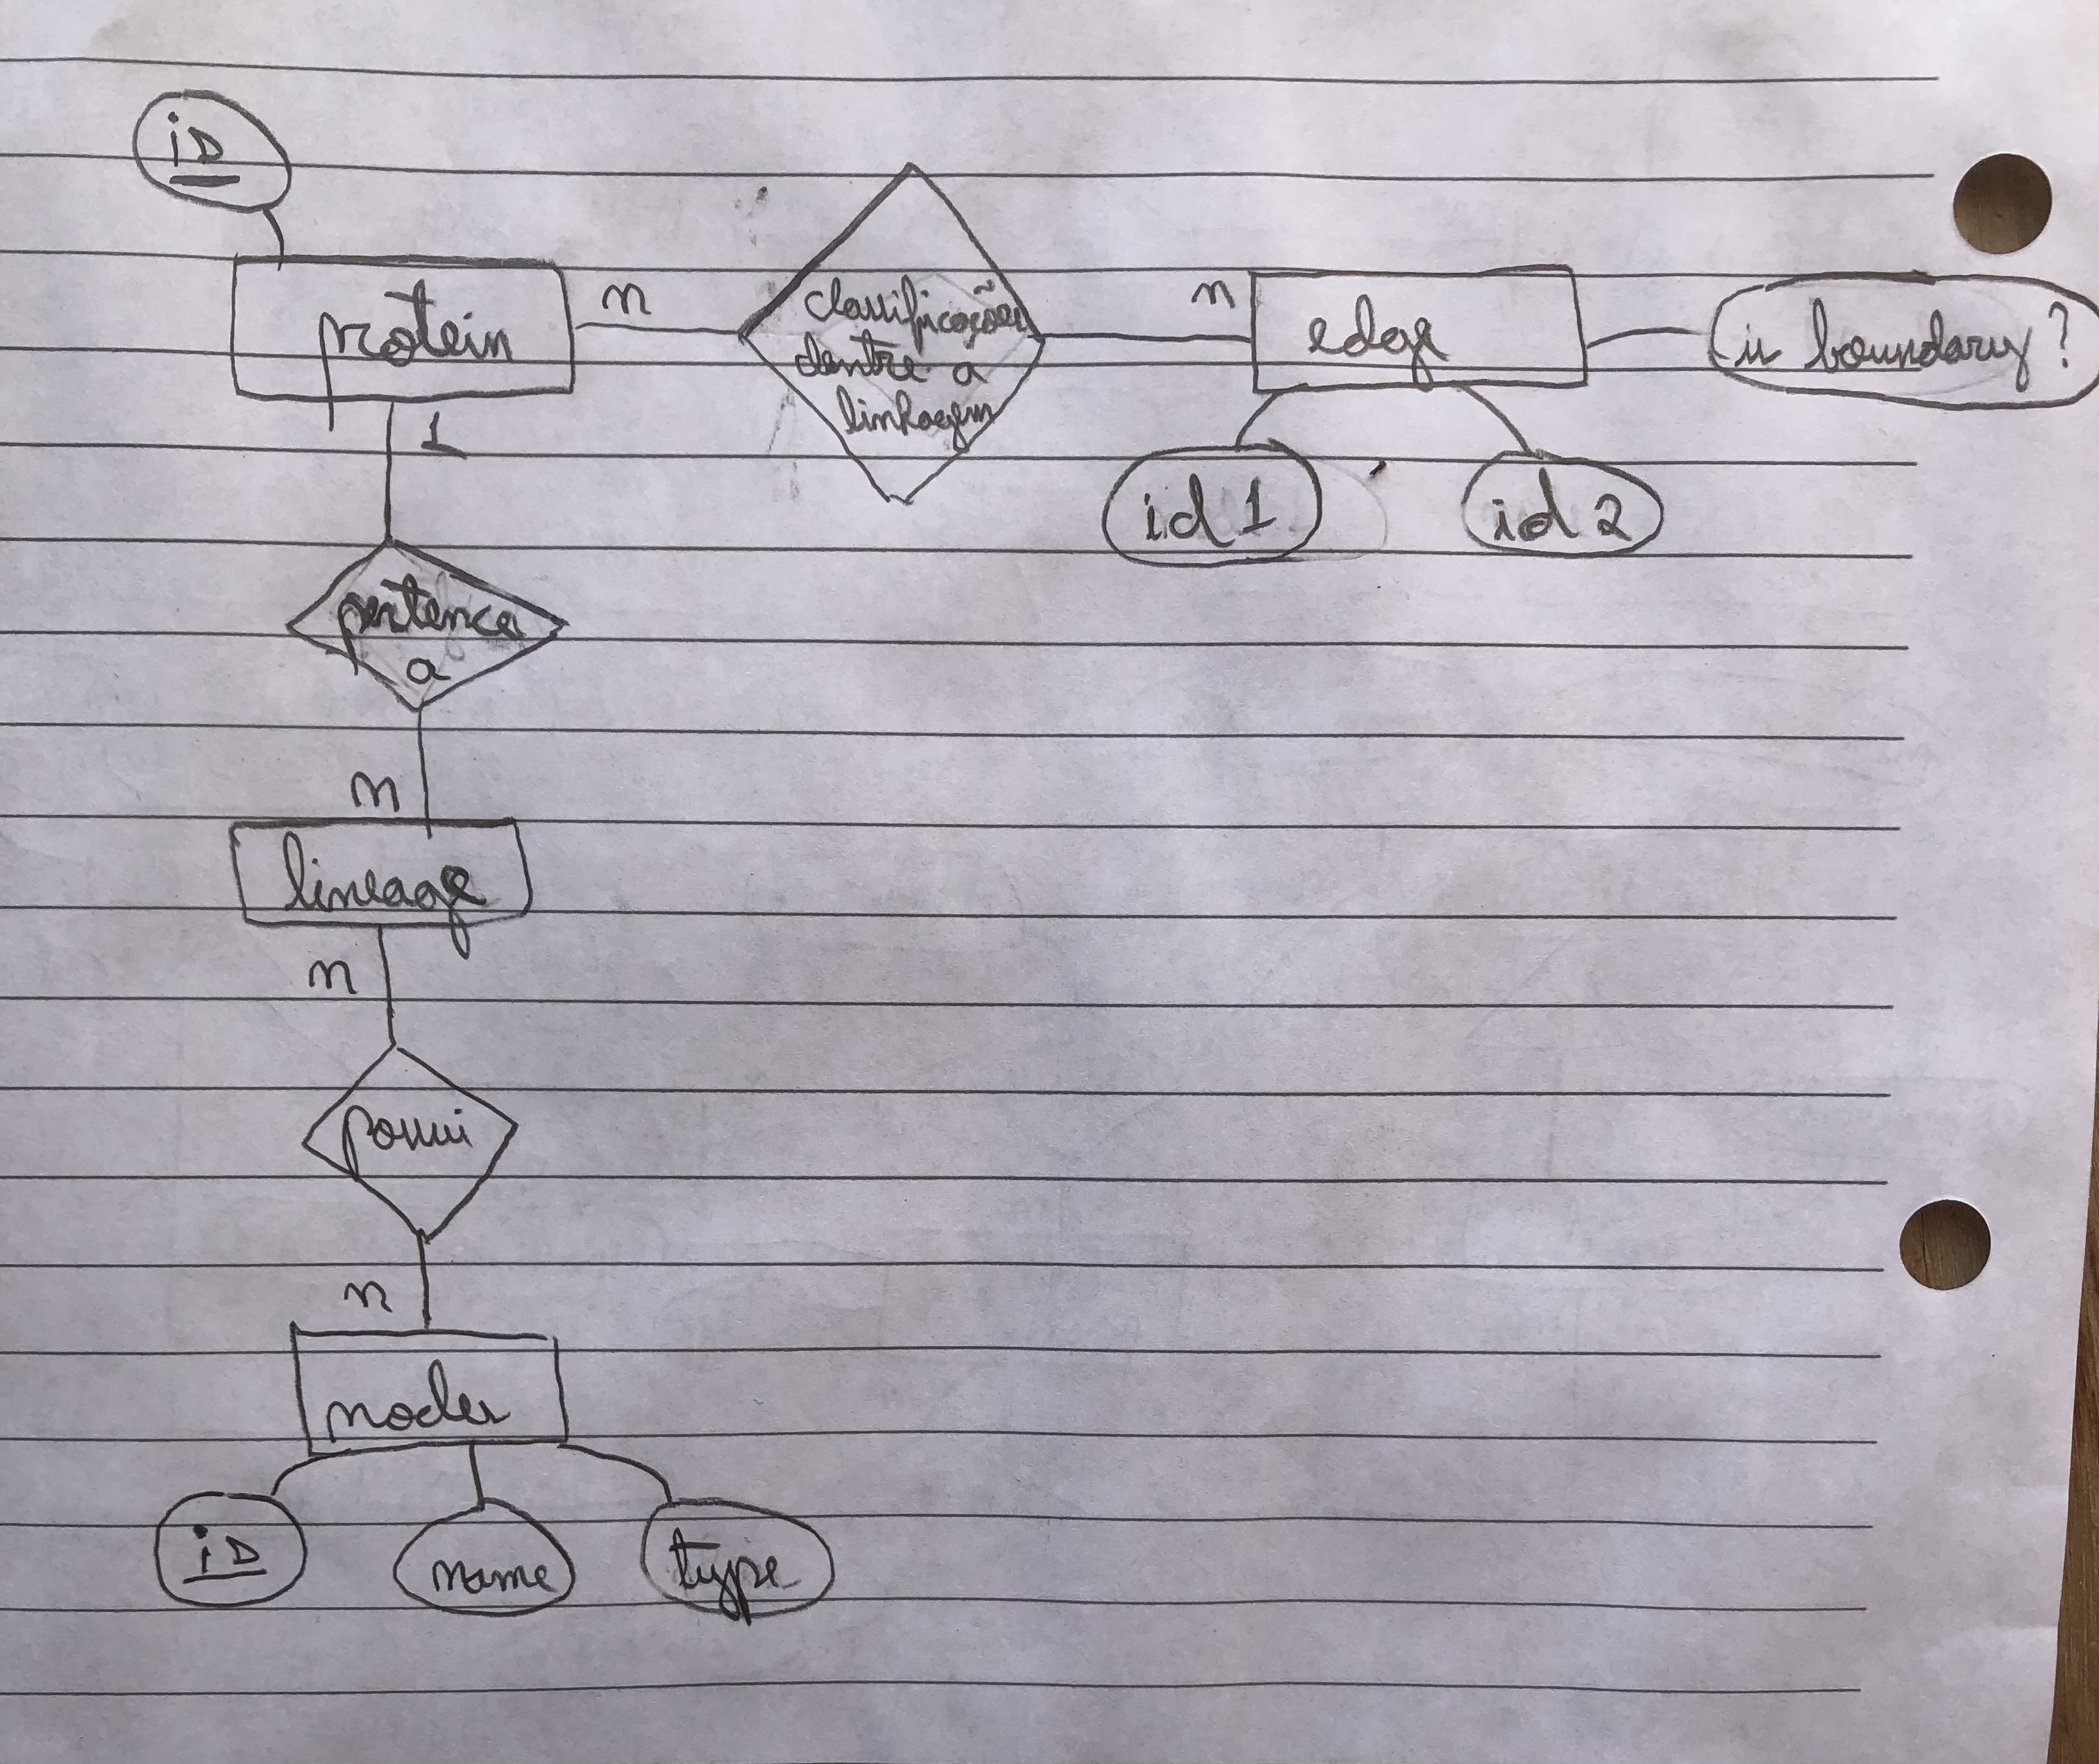 iD
protein
n
classificações
dentre a
linhagem
n
edge
is boundary?
1
id 1
id 2
pertence
a
n
lineage
n
possui
n
nodes
iD
name
type